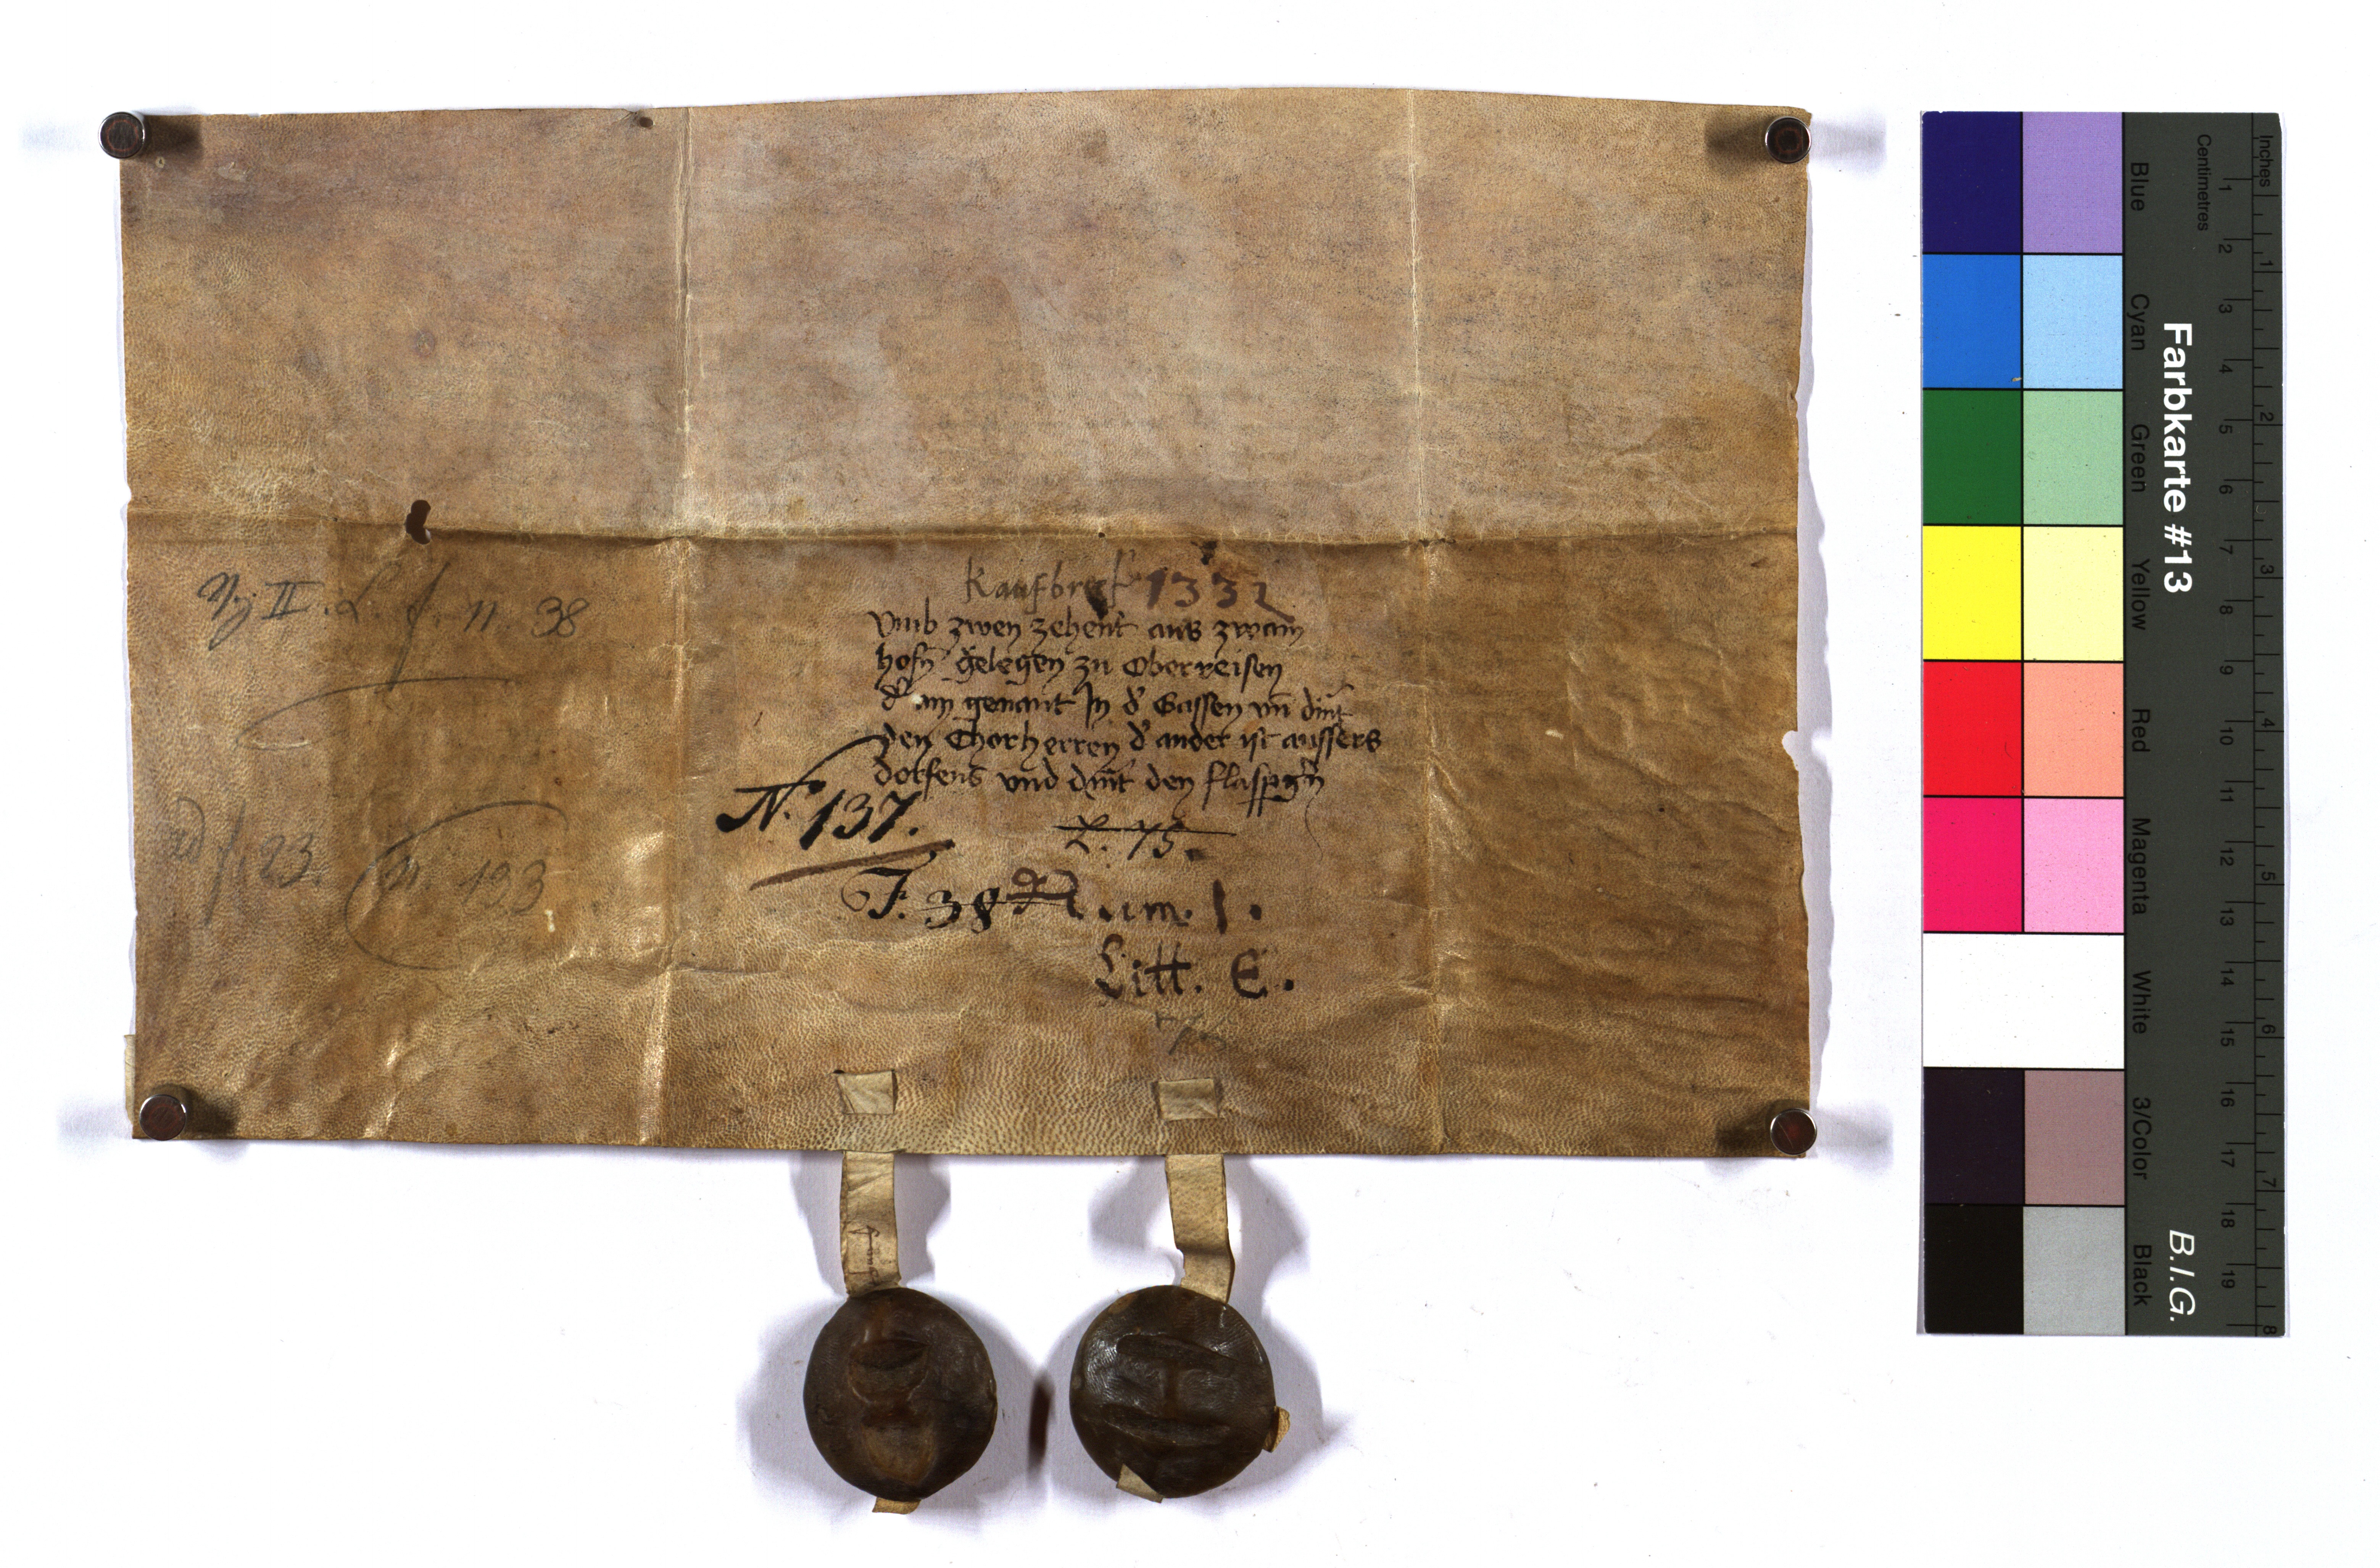 Kaufbreif 1332
Vmb zwen zehent aus zwain
hofn gelegen zu Oberreisen
d' ain genant In d' Gassen vn dint
den Chorherren d' ander ist aussers
dorfens vnd dint den
N. 137.
F. 38 Num. 1.
Litt. E.
II. L. f. n. 38
f. 23. n. 193
Farbkarte #13
B.I.G.
Blue Cyan Green Yellow Red Magenta White 3/Color Black
Centimetres 1 2 3 4 5 6 7 8 9 10 11 12 13 14 15 16 17 18 19
Inches 1 2 3 4 5 6 7 8